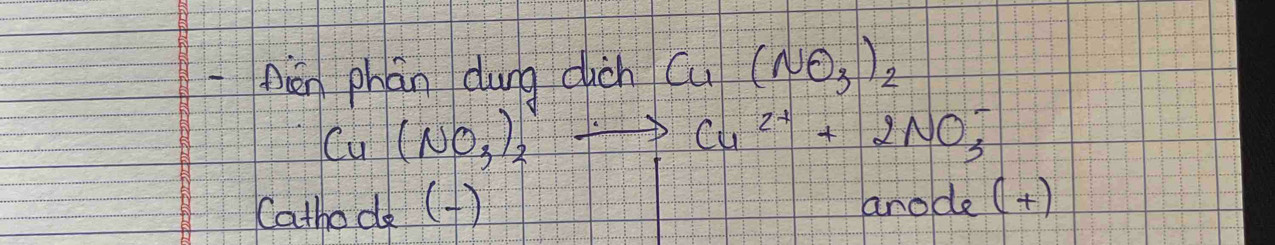 - Điện phân dung dịch Cu (NO₃)₂
Cu (NO₃)₂ → Cu²⁺ + 2NO₃⁻
Cathode (-) anode (+)